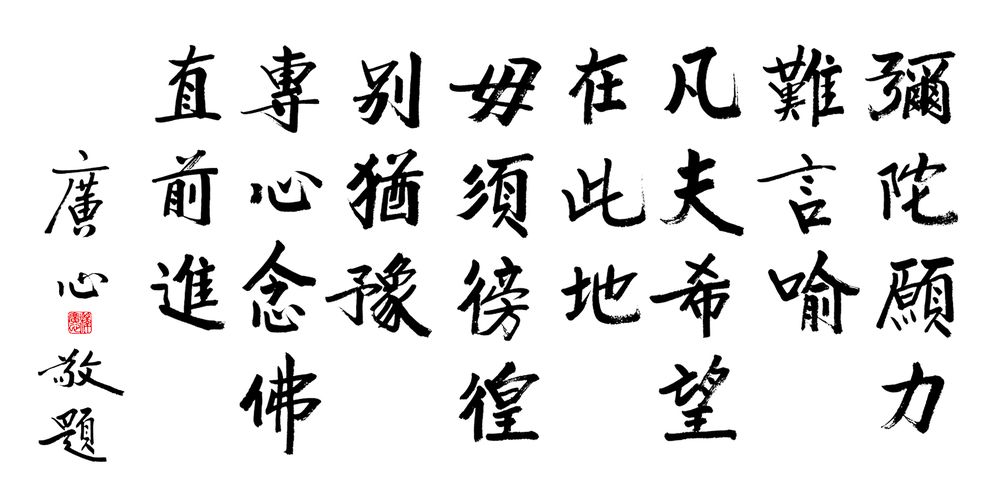 彌陀願力
難言喻
凡夫希望
在此地
毋須徬徨
別猶豫
專心念佛
直前進
廣心敬題